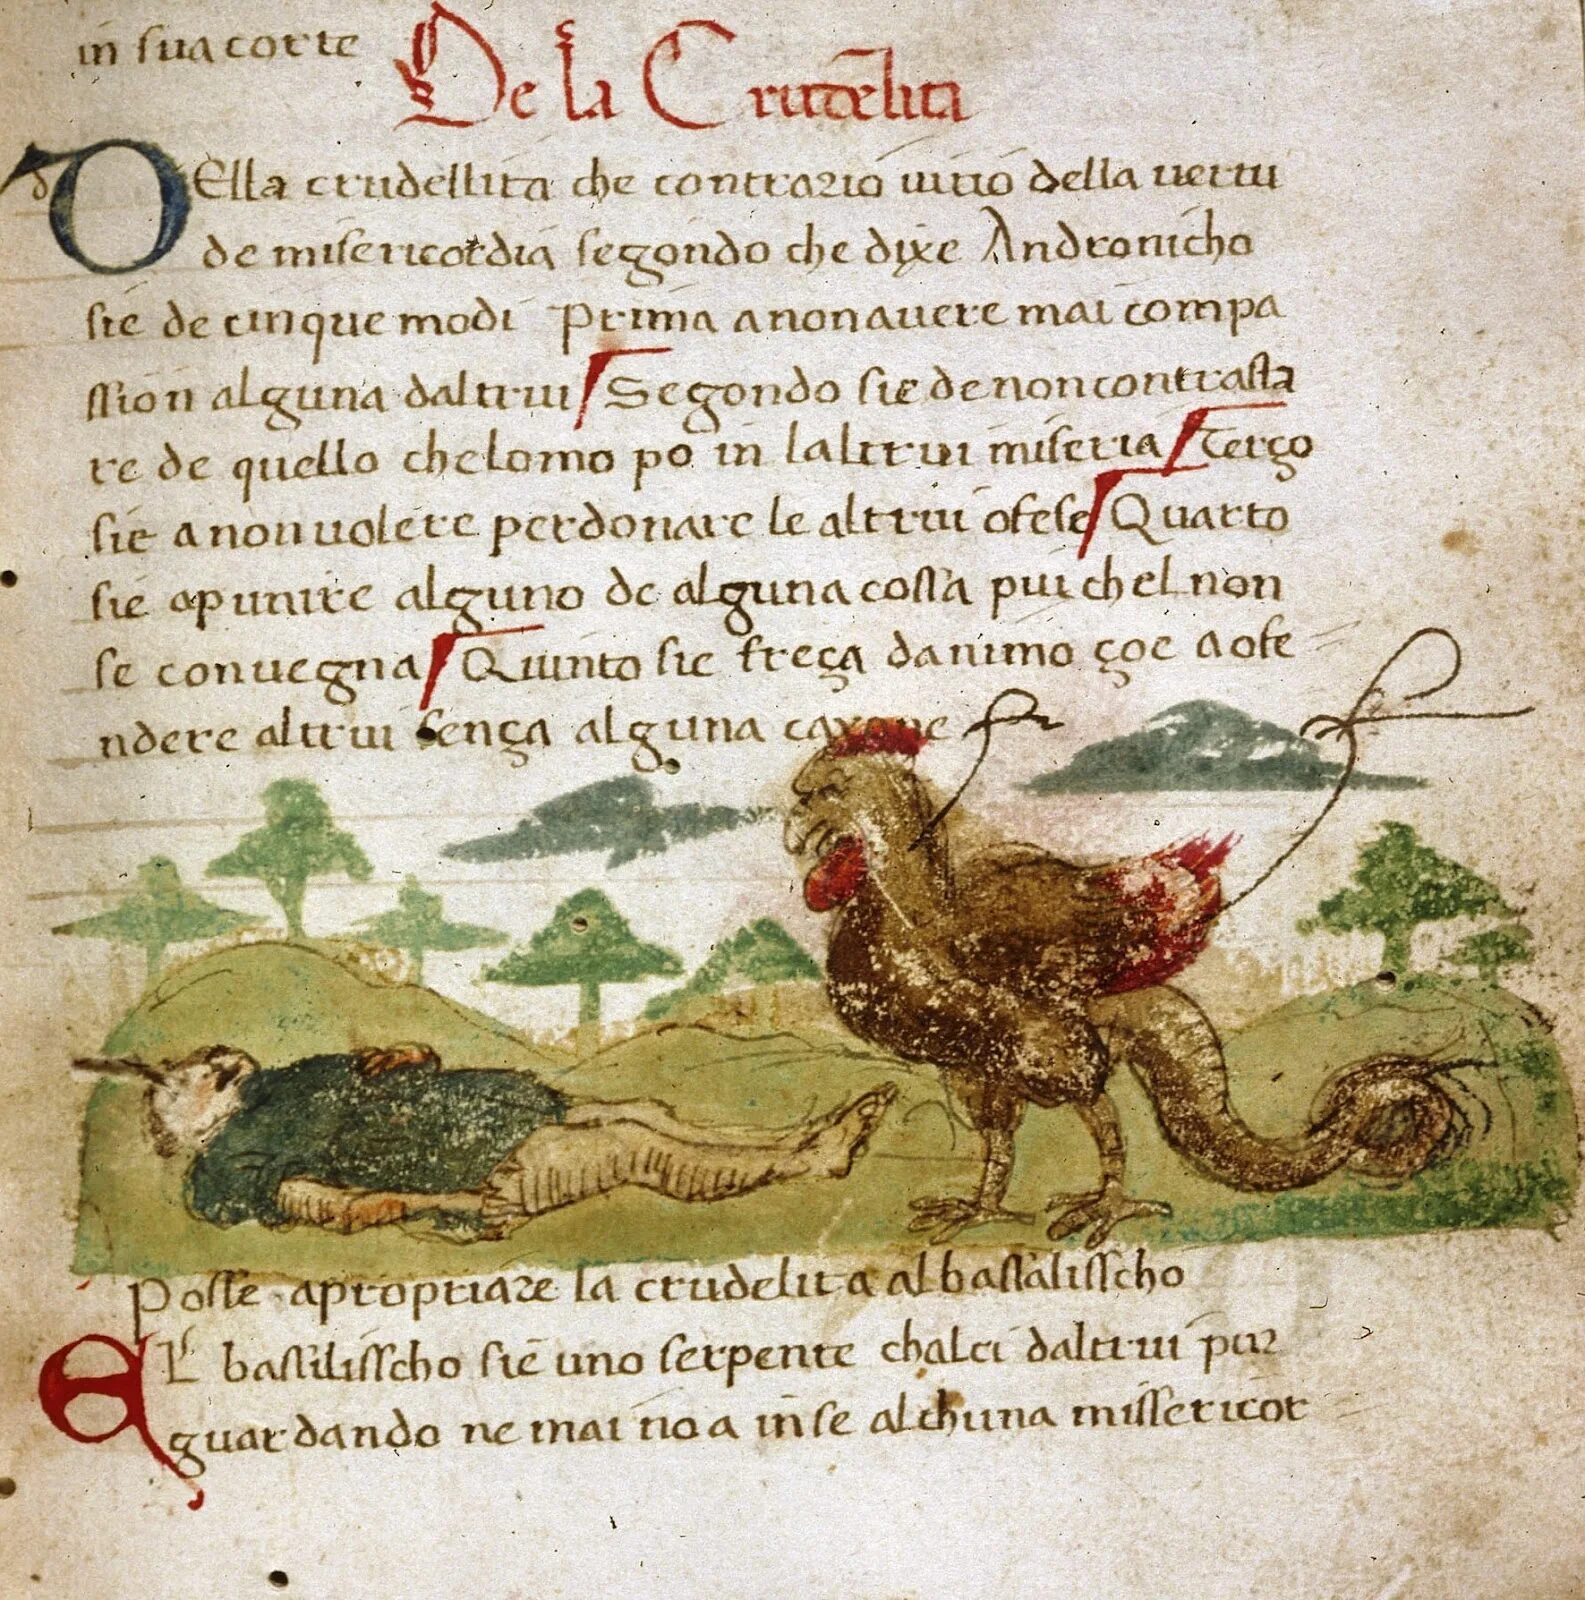 in sua corte
De la Crudelita
d DElla crudellita che contrario uitio della uertu
de misericordia segondo che dixe Andronicho
sie de cinque modi Prima a non auere mai compa
ssion alguna daltrui Segondo sie de non contrasta
re de quello che lomo po in laltrui miseria Terço
sie a non uolere perdonare le altrui ofese Quarto
sie apunire alguno de alguna cossa pui chel non
se conuegna Quinto sie freça danimo çoe a ofe
ndere altrui sença alguna caxone
Posse apropriare la crudelita al bassalisscho
EL bassilisscho sie uno serpente chalci daltrui pur
guardando ne mai no a in se alchuna missericor